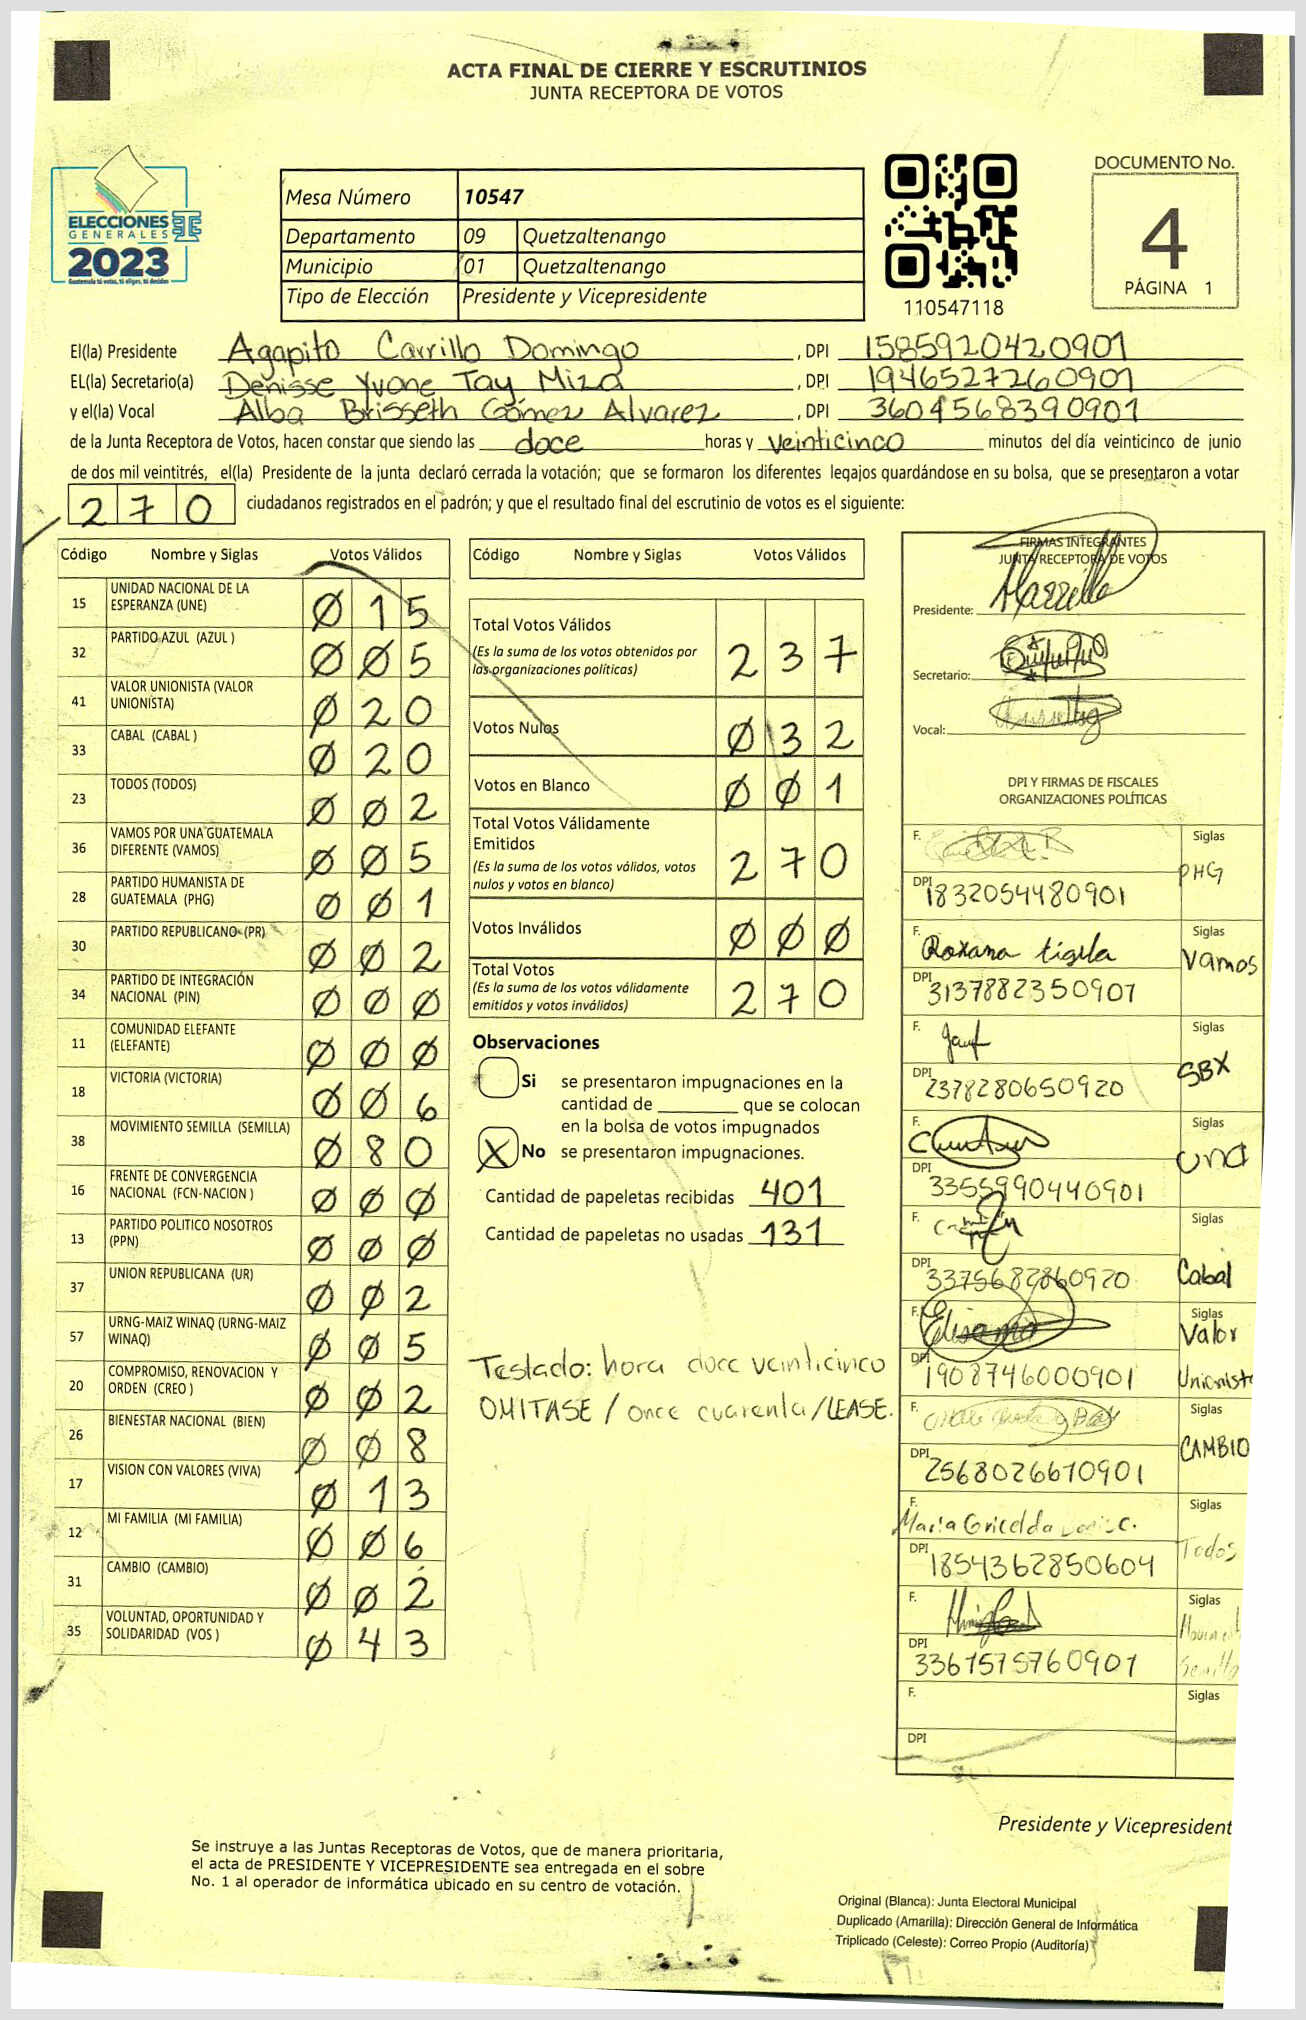 ACTA FINAL DE CIERRE Y ESCRUTINIOS
JUNTA RECEPTORA DE VOTOS
ELECCIONES
GENERALES
2023
Guatemala tú votas, tú eliges, tú decides
Mesa Número 10547
Departamento 09 Quetzaltenango
Municipio 01 Quetzaltenango
Tipo de Elección Presidente y Vicepresidente
110547118
DOCUMENTO No.
4
PÁGINA 1
El(la) Presidente Agapito Carrillo Domingo , DPI 1585920420901
EL(la) Secretario(a) Denisse Yvone Tay Miza , DPI 1946527260901
y el(la) Vocal Alba Brisseth Gómez Alvarez , DPI 3604568390901
de la Junta Receptora de Votos, hacen constar que siendo las doce horas y veinticinco minutos del día veinticinco de junio
de dos mil veintitrés, el(la) Presidente de la junta declaró cerrada la votación; que se formaron los diferentes legajos guardándose en su bolsa, que se presentaron a votar
270 ciudadanos registrados en el padrón; y que el resultado final del escrutinio de votos es el siguiente:
Código Nombre y Siglas Votos Válidos
15 UNIDAD NACIONAL DE LA
ESPERANZA (UNE) 015
32 PARTIDO AZUL (AZUL ) 005
41 VALOR UNIONISTA (VALOR
UNIONISTA) 020
33 CABAL (CABAL ) 020
23 TODOS (TODOS) 002
36 VAMOS POR UNA GUATEMALA
DIFERENTE (VAMOS) 005
28 PARTIDO HUMANISTA DE
GUATEMALA (PHG) 001
30 PARTIDO REPUBLICANO (PR) 002
34 PARTIDO DE INTEGRACIÓN
NACIONAL (PIN) 000
11 COMUNIDAD ELEFANTE
(ELEFANTE) 000
18 VICTORIA (VICTORIA) 006
38 MOVIMIENTO SEMILLA (SEMILLA) 080
16 FRENTE DE CONVERGENCIA
NACIONAL (FCN-NACION ) 000
13 PARTIDO POLITICO NOSOTROS
(PPN) 000
37 UNION REPUBLICANA (UR) 002
57 URNG-MAIZ WINAQ (URNG-MAIZ
WINAQ) 005
20 COMPROMISO, RENOVACION Y
ORDEN (CREO ) 002
26 BIENESTAR NACIONAL (BIEN) 008
17 VISION CON VALORES (VIVA) 013
12 MI FAMILIA (MI FAMILIA) 006
31 CAMBIO (CAMBIO) 002
35 VOLUNTAD, OPORTUNIDAD Y
SOLIDARIDAD (VOS ) 043
Código Nombre y Siglas Votos Válidos
Total Votos Válidos
(Es la suma de los votos obtenidos por
las organizaciones políticas) 237
Votos Nulos 032
Votos en Blanco 001
Total Votos Válidamente
Emitidos
(Es la suma de los votos válidos, votos
nulos y votos en blanco) 270
Votos Inválidos 000
Total Votos
(Es la suma de los votos válidamente
emitidos y votos inválidos) 270
Observaciones
Si se presentaron impugnaciones en la
cantidad de ________ que se colocan
en la bolsa de votos impugnados
X No se presentaron impugnaciones.
Cantidad de papeletas recibidas 401
Cantidad de papeletas no usadas 131
Testado: hora doce veinticinco
OMITASE / once cuarenta/LEASE.
FIRMAS INTEGRANTES
JUNTA RECEPTORA DE VOTOS
Presidente:
Secretario:
Vocal:
DPI Y FIRMAS DE FISCALES
ORGANIZACIONES POLÍTICAS
F. Siglas
PHG
DPI 1832054480901
F. Roxana tigila Siglas
Vamos
DPI 3137882350901
F. Siglas
SBX
DPI 2378280650920
F. Siglas
una
DPI 3355990440901
F. Siglas
Cabal
DPI 3375682860920
F. Siglas
Valor
Unionista
DPI 1908746000901
F. Siglas
CAMBIO
DPI 2568026610901
F. Maria Gricelda Siglas
Todos
DPI 1854362850604
F. Siglas
DPI 3361575760901
F. Siglas
DPI
Presidente y Vicepresident
Se instruye a las Juntas Receptoras de Votos, que de manera prioritaria,
el acta de PRESIDENTE Y VICEPRESIDENTE sea entregada en el sobre
No. 1 al operador de informática ubicado en su centro de votación.
Original (Blanca): Junta Electoral Municipal
Duplicado (Amarilla): Dirección General de Informática
Triplicado (Celeste): Correo Propio (Auditoría)